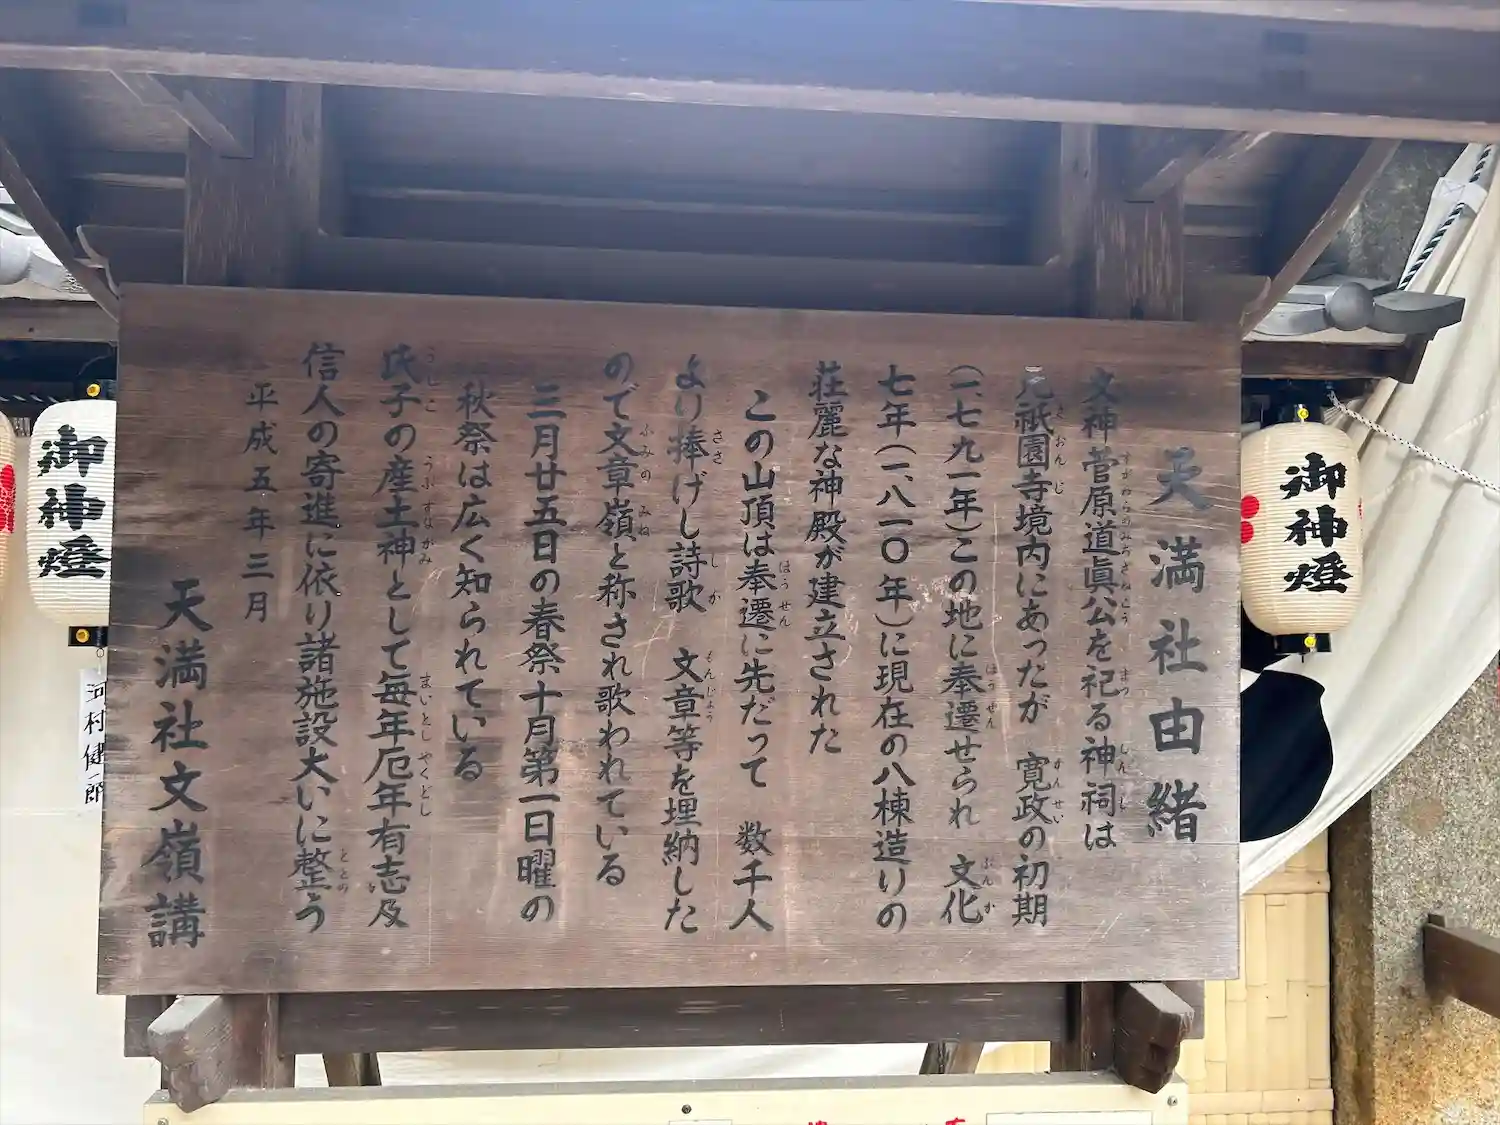 天満社由緒
文神 菅原道眞公を祀る神祠は
元祇園寺境内にあったが 寛政の初期
(一七九一年)この地に奉遷せられ 文化
七年(一八一〇年)に現在の八棟造りの
荘麗な神殿が建立された
この山頂は奉遷に先だって 数千人
より捧げし詩歌 文章等を埋納した
ので文章嶺と称され歌われている
三月廿五日の春祭十月第一日曜の
秋祭は広く知られている
氏子の産土神として毎年厄年有志及
信人の寄進に依り諸施設大いに整う
平成五年三月
天満社文嶺講
御神燈
御神燈
河村健一郎